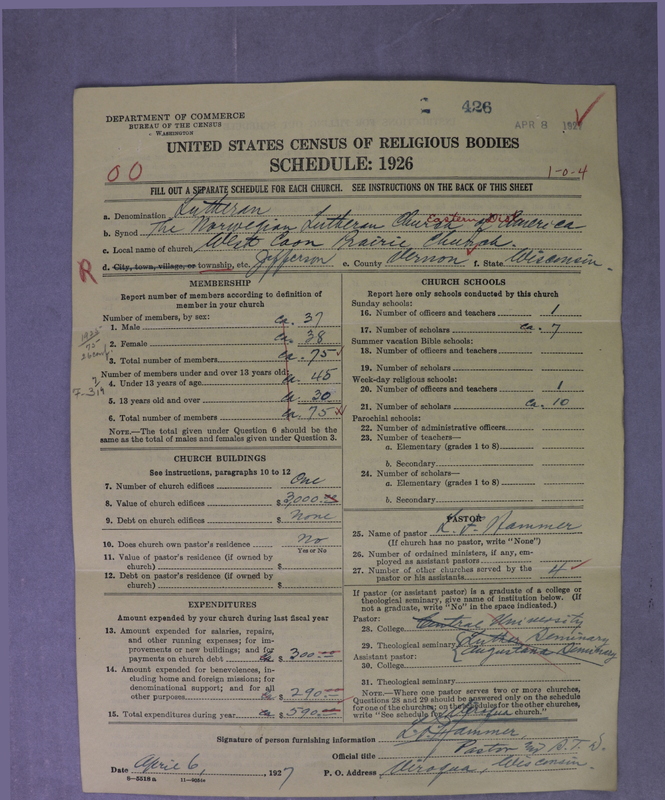 426
APR 8 1927
DEPARTMENT OF COMMERCE
BUREAU OF THE CENSUS
WASHINGTON
UNITED STATES CENSUS OF RELIGIOUS BODIES
SCHEDULE: 1926
00
1-0-4
FILL OUT A SEPARATE SCHEDULE FOR EACH CHURCH. SEE INSTRUCTIONS ON THE BACK OF THIS SHEET
a. Denomination Lutheran
Eastern Dist
b. Synod The Norwegian Lutheran Church of America
c. Local name of church West Coon Prairie Church.
R
d. City, town, village, or township, etc. Jefferson e. County Vernon f. State Wisconsin.
MEMBERSHIP
Report number of members according to definition of
member in your church
Number of members, by sex:
1. Male ca. 37
2. Female ca. 38
3. Total number of members ca. 75
Number of members under and over 13 years old:
4. Under 13 years of age ca. 45
5. 13 years old and over ca. 30
6. Total number of members ca. 75
NOTE.—The total given under Question 6 should be
the same as the total of males and females given under Question 3.
CHURCH BUILDINGS
See instructions, paragraphs 10 to 12
7. Number of church edifices One
8. Value of church edifices $ 3,000
9. Debt on church edifices $ None
10. Does church own pastor's residence? No
Yes or No
11. Value of pastor's residence (if owned by
church) $
12. Debt on pastor's residence (if owned by
church) $
EXPENDITURES
Amount expended by your church during last fiscal year
13. Amount expended for salaries, repairs,
and other running expenses; for im-
provements or new buildings; and for
payments on church debt ca $ 300
14. Amount expended for benevolences, in-
cluding home and foreign missions; for
denominational support; and for all
other purposes ca $ 290
15. Total expenditures during year ca $ 590
CHURCH SCHOOLS
Report here only schools conducted by this church
Sunday schools:
16. Number of officers and teachers 1
17. Number of scholars ca. 7
Summer vacation Bible schools:
18. Number of officers and teachers
19. Number of scholars
Week-day religious schools:
20. Number of officers and teachers 1
21. Number of scholars ca. 10
Parochial schools:
22. Number of administrative officers
23. Number of teachers—
a. Elementary (grades 1 to 8)
b. Secondary
24. Number of scholars—
a. Elementary (grades 1 to 8)
b. Secondary
PASTOR
25. Name of pastor L. J. Hammer
(If church has no pastor, write "None")
26. Number of ordained ministers, if any, em-
ployed as assistant pastors
27. Number of other churches served by the
pastor or his assistants 4
If pastor (or assistant pastor) is a graduate of a college or
theological seminary, give name of institution below. (If
not a graduate, write "No" in the space indicated.)
Pastor:
28. College Central University
29. Theological seminary Luther Seminary
Augustana Seminary
Assistant pastor:
30. College
31. Theological seminary
NOTE.—Where one pastor serves two or more churches,
Questions 28 and 29 should be answered only on the schedule
for one of the churches; on the schedules for the other churches,
write "See schedule for Viroqua church."
Signature of person furnishing information L. J. Hammer,
Official title Pastor
Date April 6, 1927
P. O. Address Viroqua, Wisconsin.